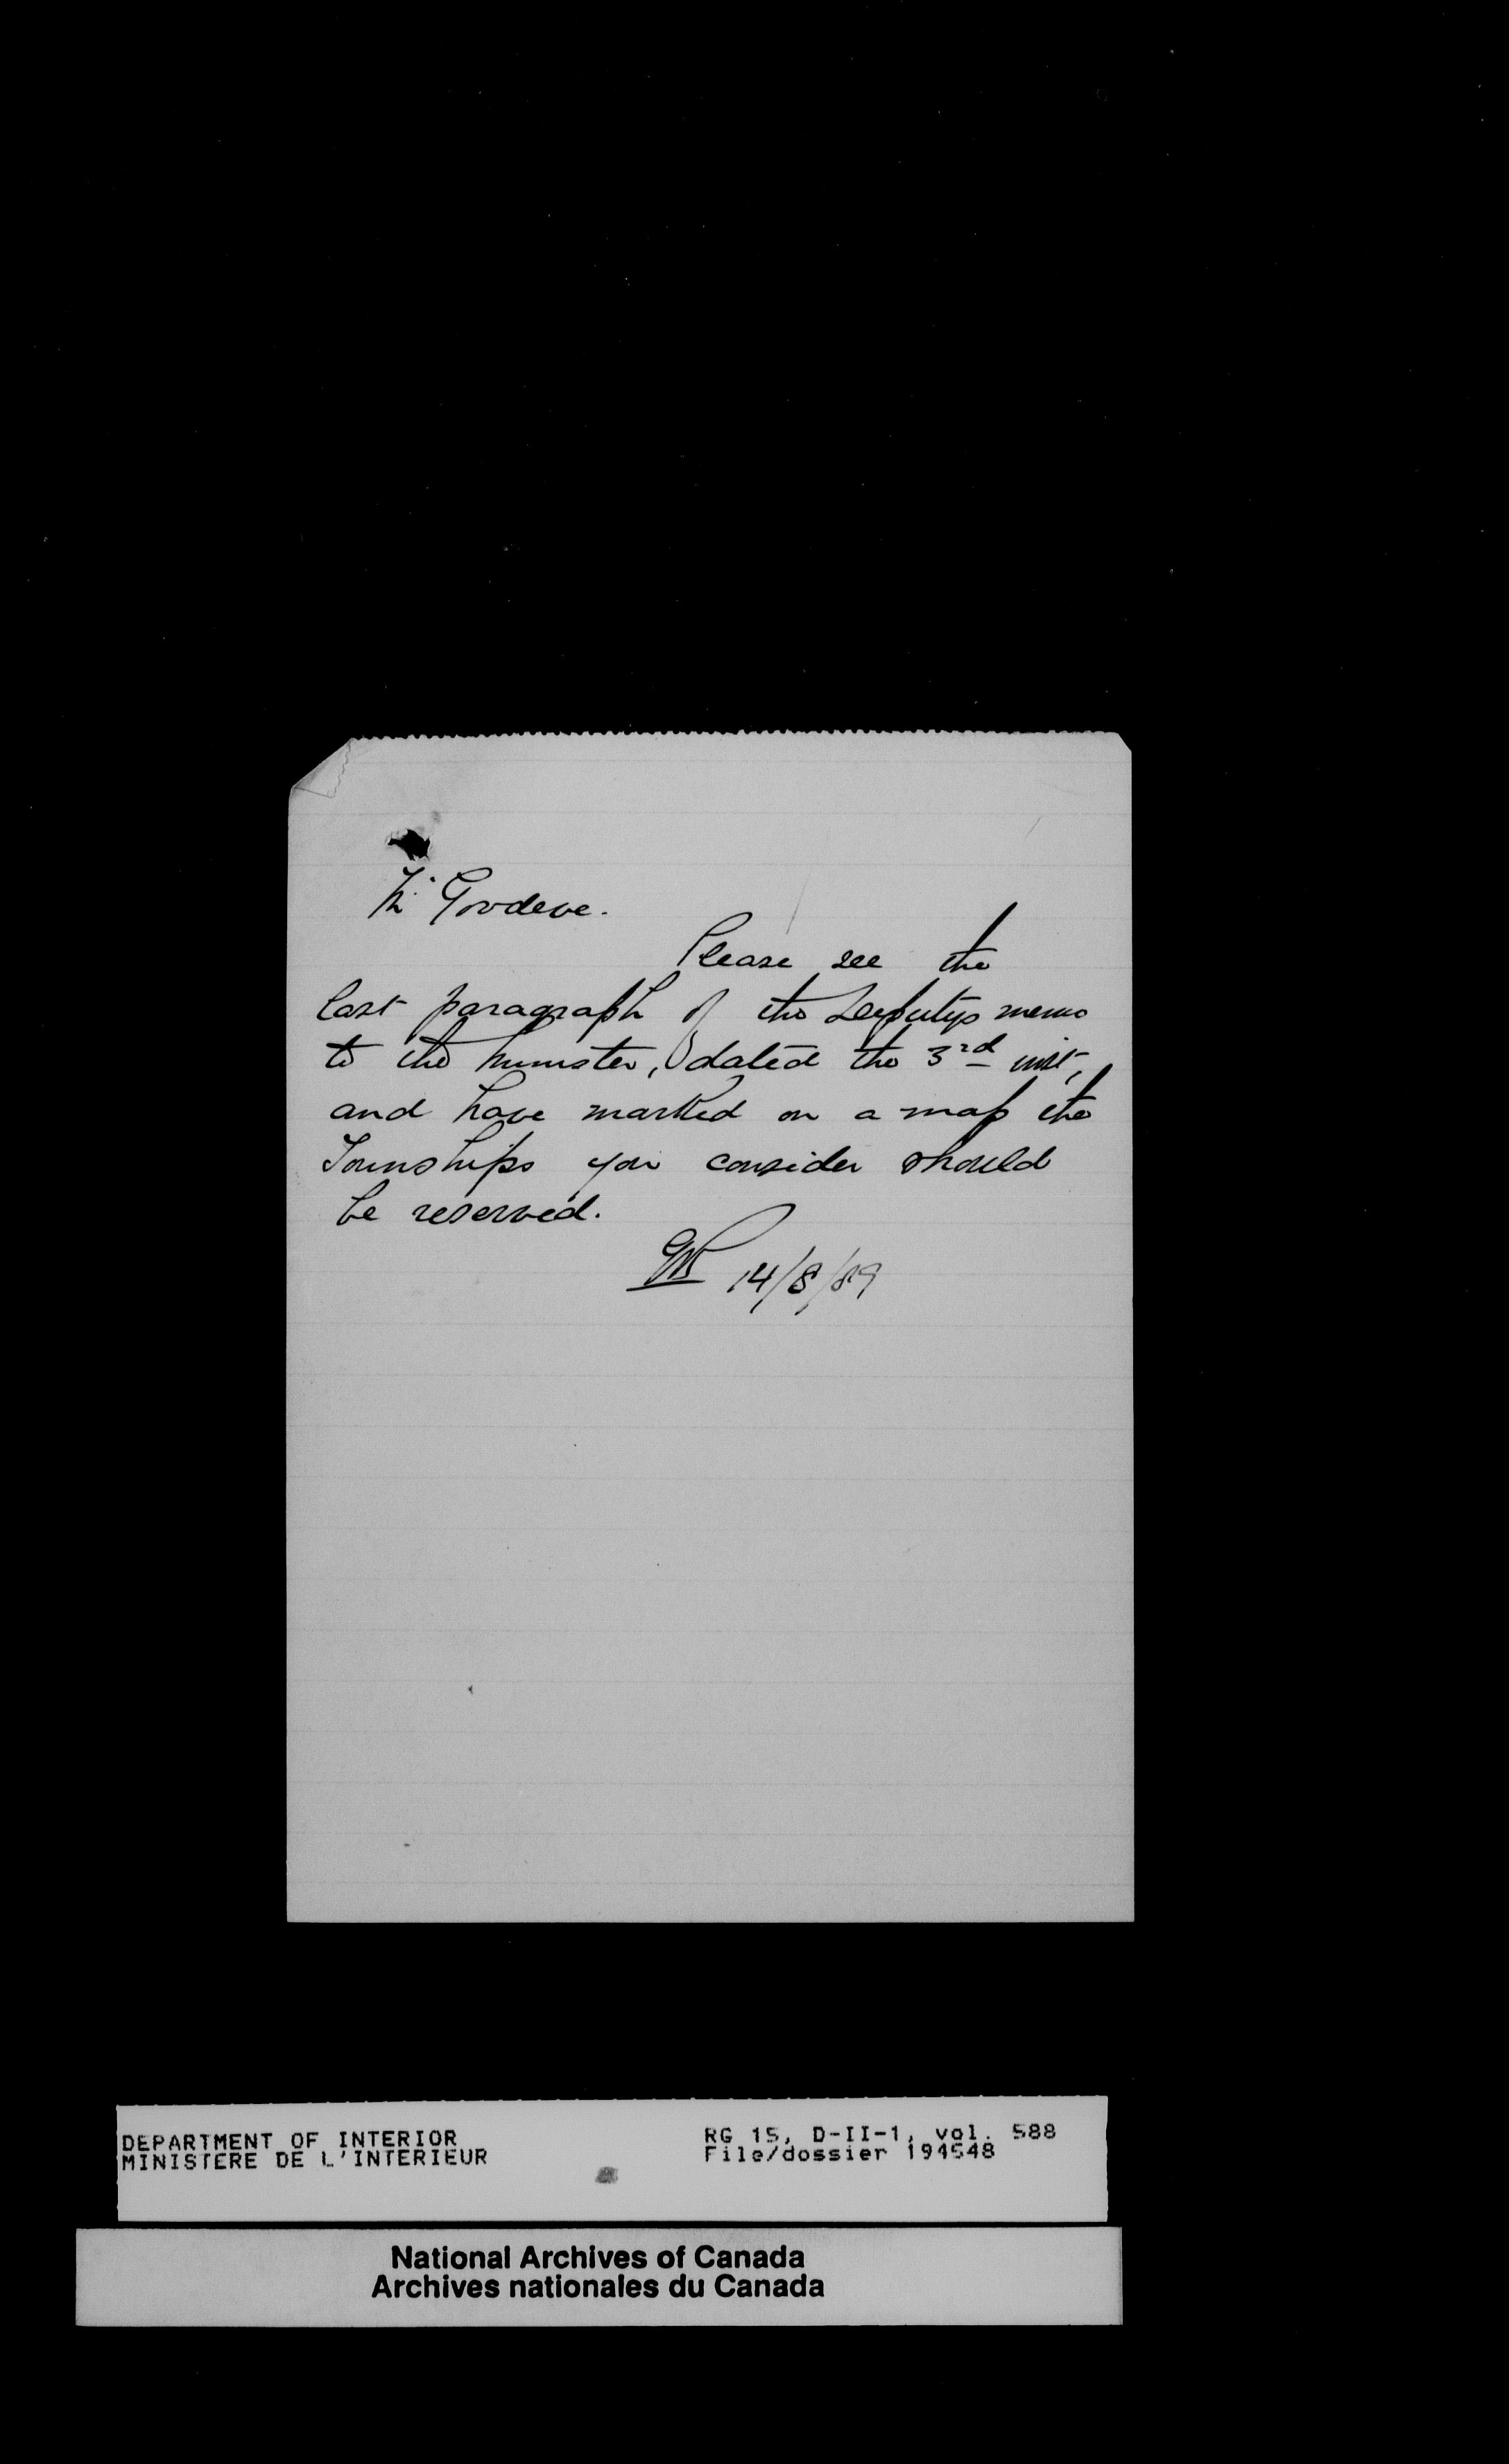 Mr Goodeve.
Please see the
last paragraph of the Deputys memo
to the Minister, dated the 3rd inst,
and have marked on a map the
Townships you consider should
be reserved.
14/8/89
DEPARTMENT OF INTERIOR
MINISTERE DE L'INTERIEUR
RG 15, D-II-1, vol. 588
File/dossier 194548
National Archives of Canada
Archives nationales du Canada